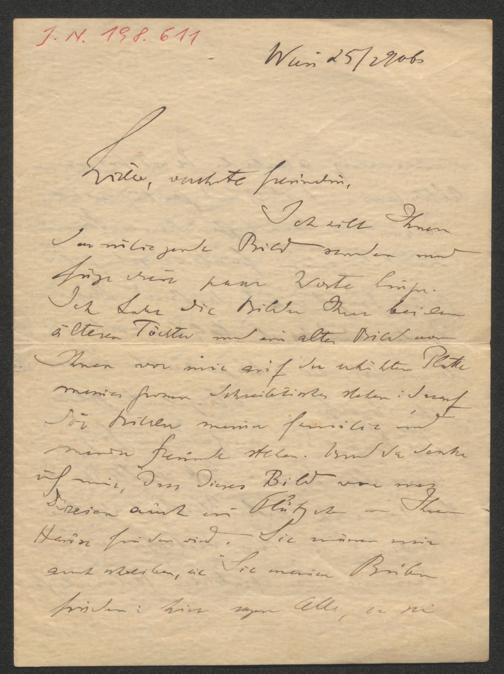 J. N. 198.611
Wien 25/2 906
Liebe, verehrte Freundin,
Ich will Ihnen
das Bild senden und
füge diese paar Worte hinzu.
Ich habe die Bilder Ihrer beiden
älteren Töchter und ein altes Bild von
Ihnen vor mir auf der rechten Platte
meines grossen Schreibtisches stehen: darauf
die Bilder meiner Familie und
meiner Freunde stehen. Und da denke
ich mir, dass dieses Bild von uns
Dreien auch ein Plätzchen in Ihrem
Hause finden wird. Sie müssen mir
auch schreiben, wie Sie meinen Buben
finden: hier sagen Alle, er sei